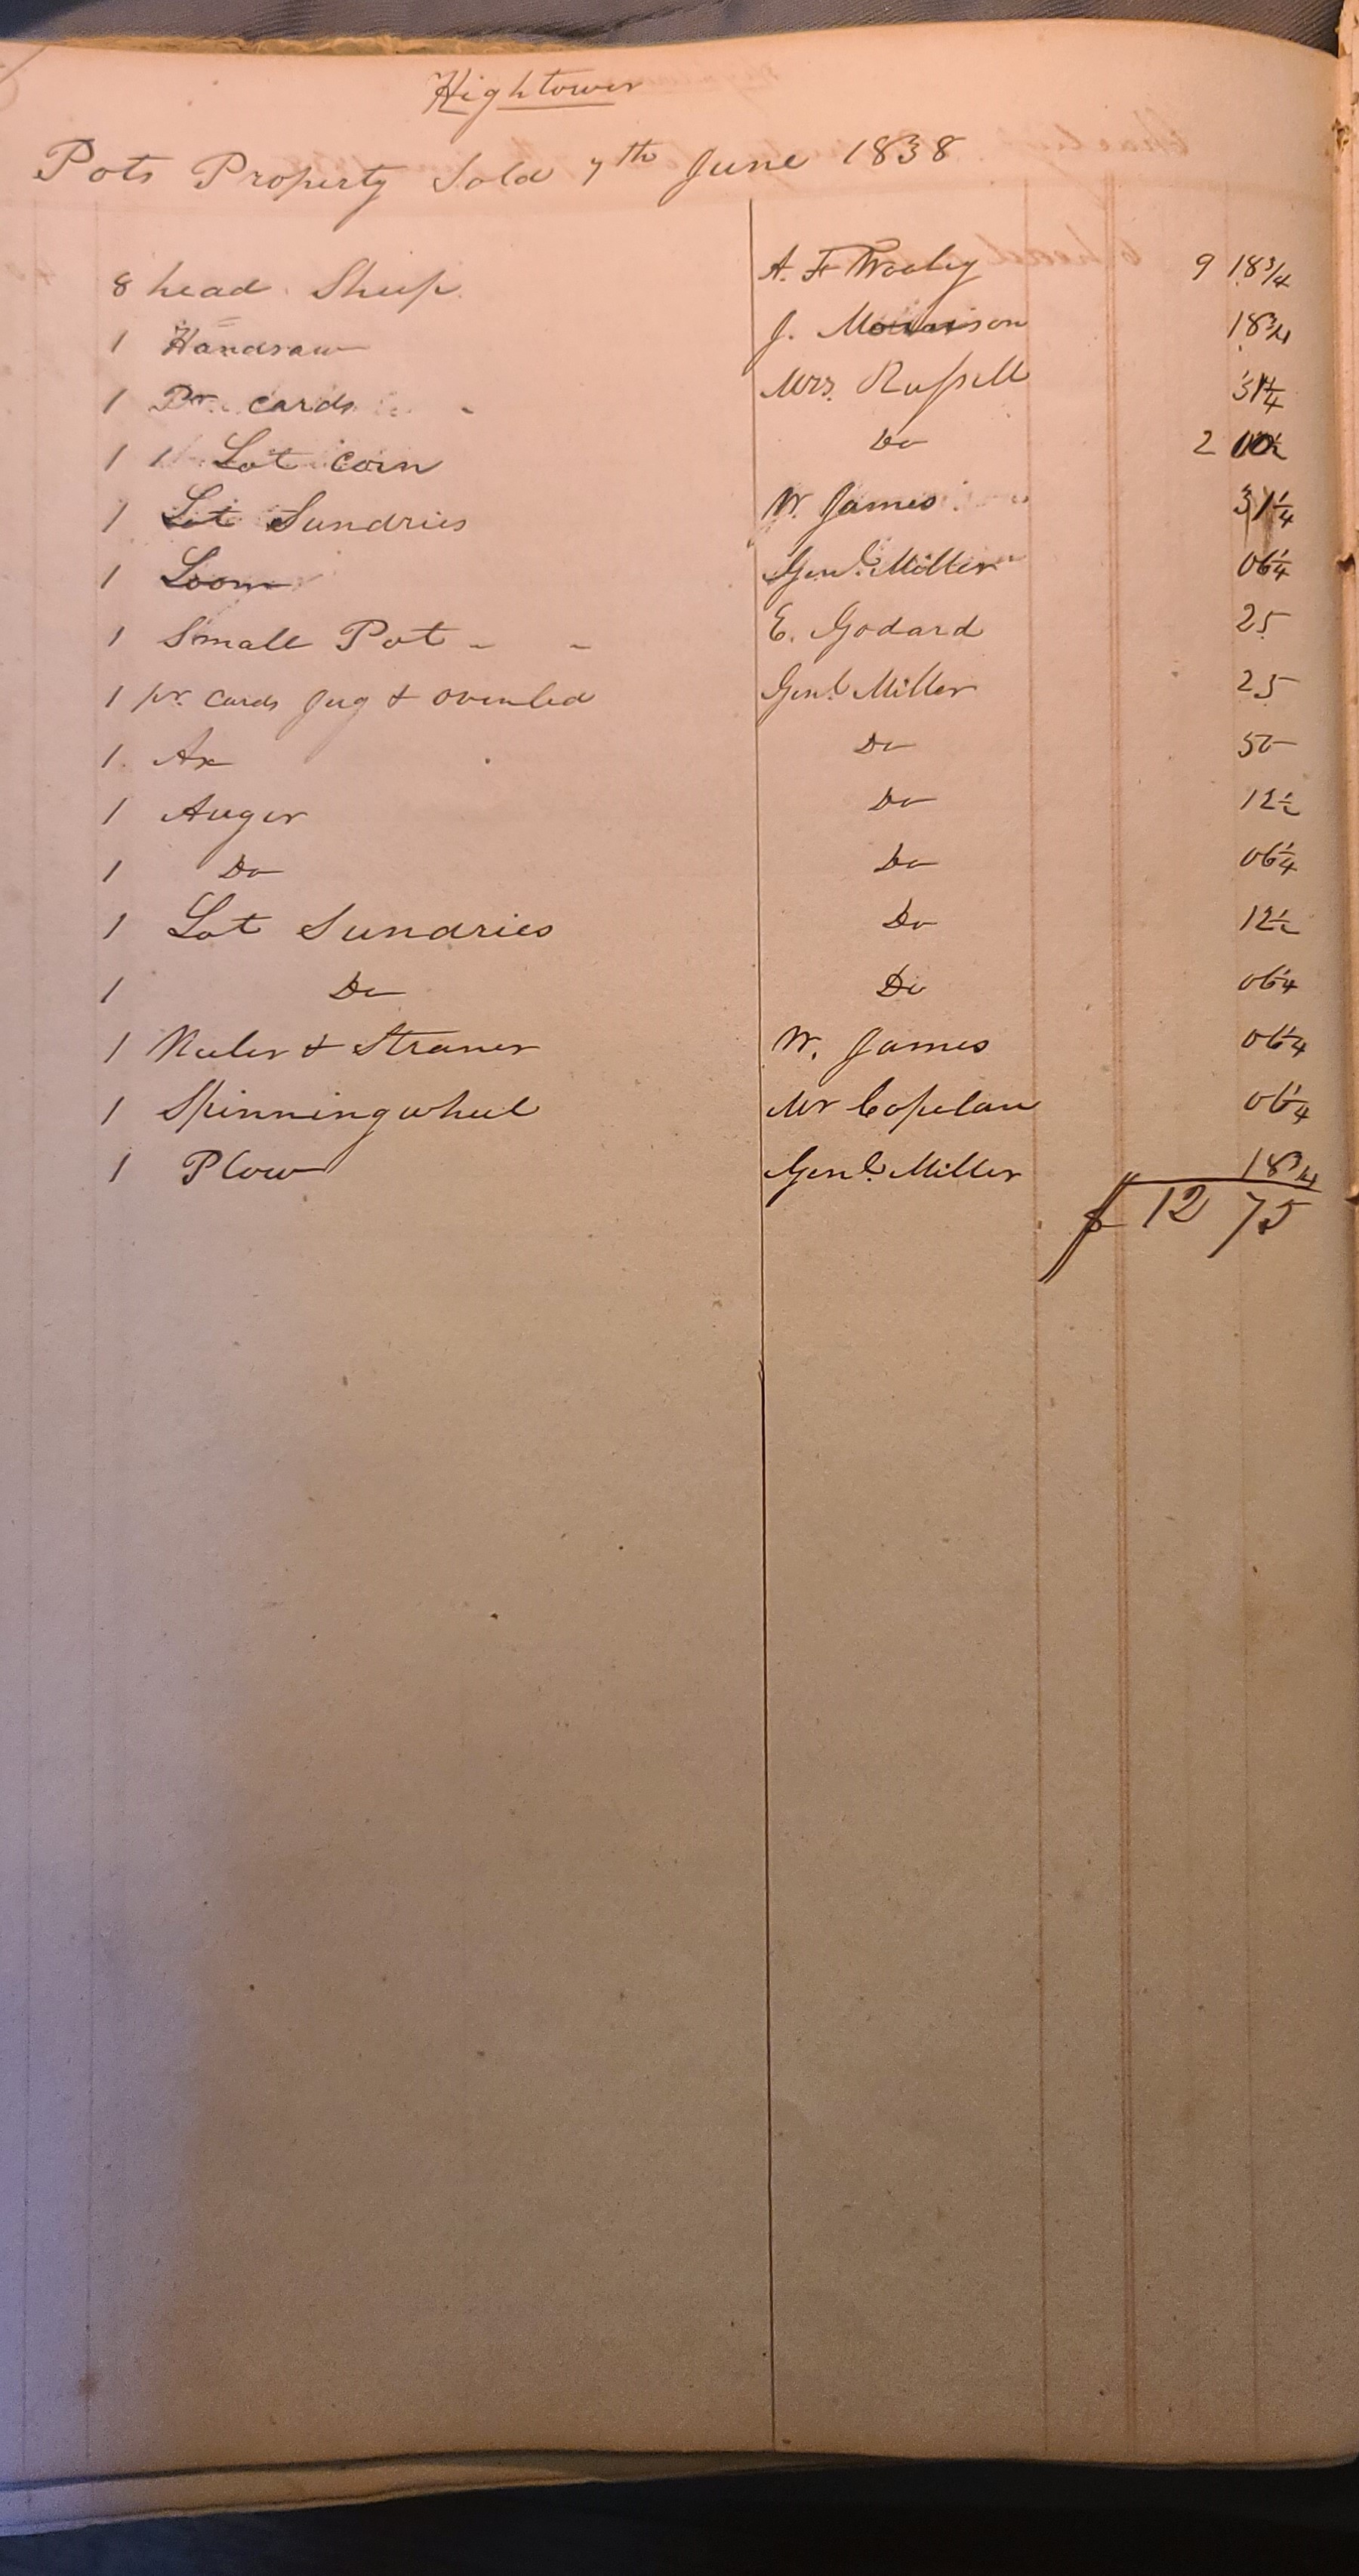 Hightower
Pots Property Sold 7th June 1838
8 head Sheep A. F Wooley 9 18 3/4
1 Handsaw J. Morrison 18 3/4
1 Pr. cards Mrs. Russell 31 1/4
1 Lot corn Do 2
1 Lot Sundries W. James 31 1/4
1 Loom Genl. Miller 06 1/4
1 Small Pot - - E. Godard 25
1 pr. cards Jug & ovenled Genl. Miller 25
1 Ax Do 50
1 Auger Do 12 1/2
1 Do Do 06 1/4
1 Lot Sundries Do 12 1/2
1 Do Do 06 1/4
1 & Straner W. James 06 1/4
1 Spinningwheel Mr Copelan 06 1/4
1 Plow Genl. Miller 18 3/4
$ 12 75